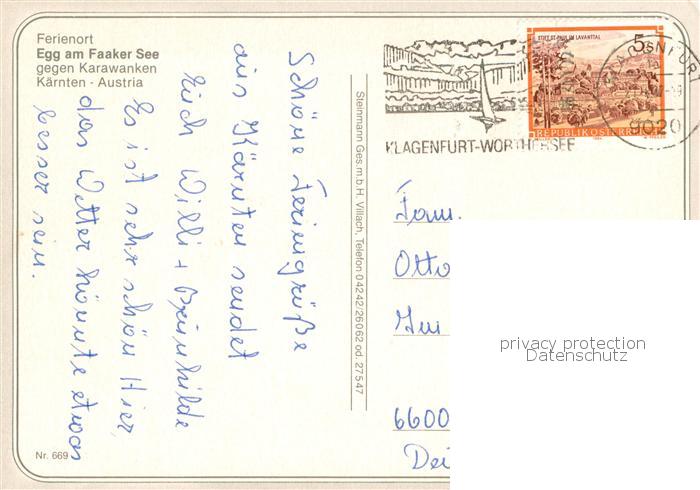 Ferienort
Egg am Faaker See
gegen Karawanken
Kärnten - Austria
Schöne Feriengrüße
aus Kärnten sendet
Euch Willi + Brunhilde
Es ist sehr schön Hier,
das Wetter könnte etwas
besser sein.
Nr. 669
Steinmann Ges.m.b.H. Villach, Telefon 04242/26062 od. 27547
STIFT ST. PAUL IM LAVANTTAL
5
REPUBLIK ÖSTERREICH
KLAGENFURT
9020
KLAGENFURT-WÖRTHERSEE
Fam.
Otto
Im
6600
privacy protection
Datenschutz